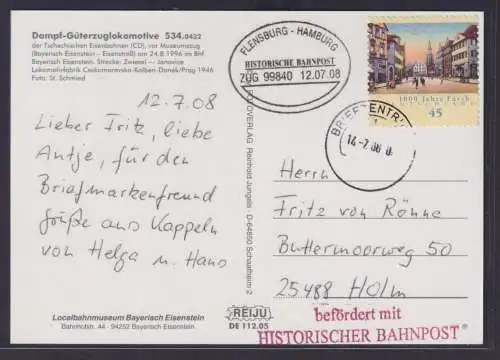 Dampf-Güterzuglokomotive 534.0432
der Tschechischen Eisenbahnen (CD), vor Museumszug
(Bayerisch Eisenstein - Eisenstraß) am 24.8.1996 im Bhf.
Bayerisch Eisenstein. Strecke: Zwiesel - Janovice
Lokomotivfabrik Ceskomoravska-Kolben-Danek/Prag 1946
Foto: St. Schmied
12.7.08
Lieber Fritz, liebe
Antje, für den
Briefmarkenfreund
Grüße aus Kappeln
von Helga u. Hans
Localbahnmuseum Bayerisch Eisenstein
Bahnhofstr. 44 · 94252 Bayerisch Eisenstein
Reinhold Jungels · D-64850 Schaafheim 2
REIJU
DE 112.05
FLENSBURG - HAMBURG
HISTORISCHE BAHNPOST
ZUG 99840 12.07.08
1000 Jahre Fürth
45
BRIEFZENTRUM
Herrn
Fritz von Rönne
Buttermoorweg 50
25488 Holm
befördert mit
HISTORISCHER BAHNPOST